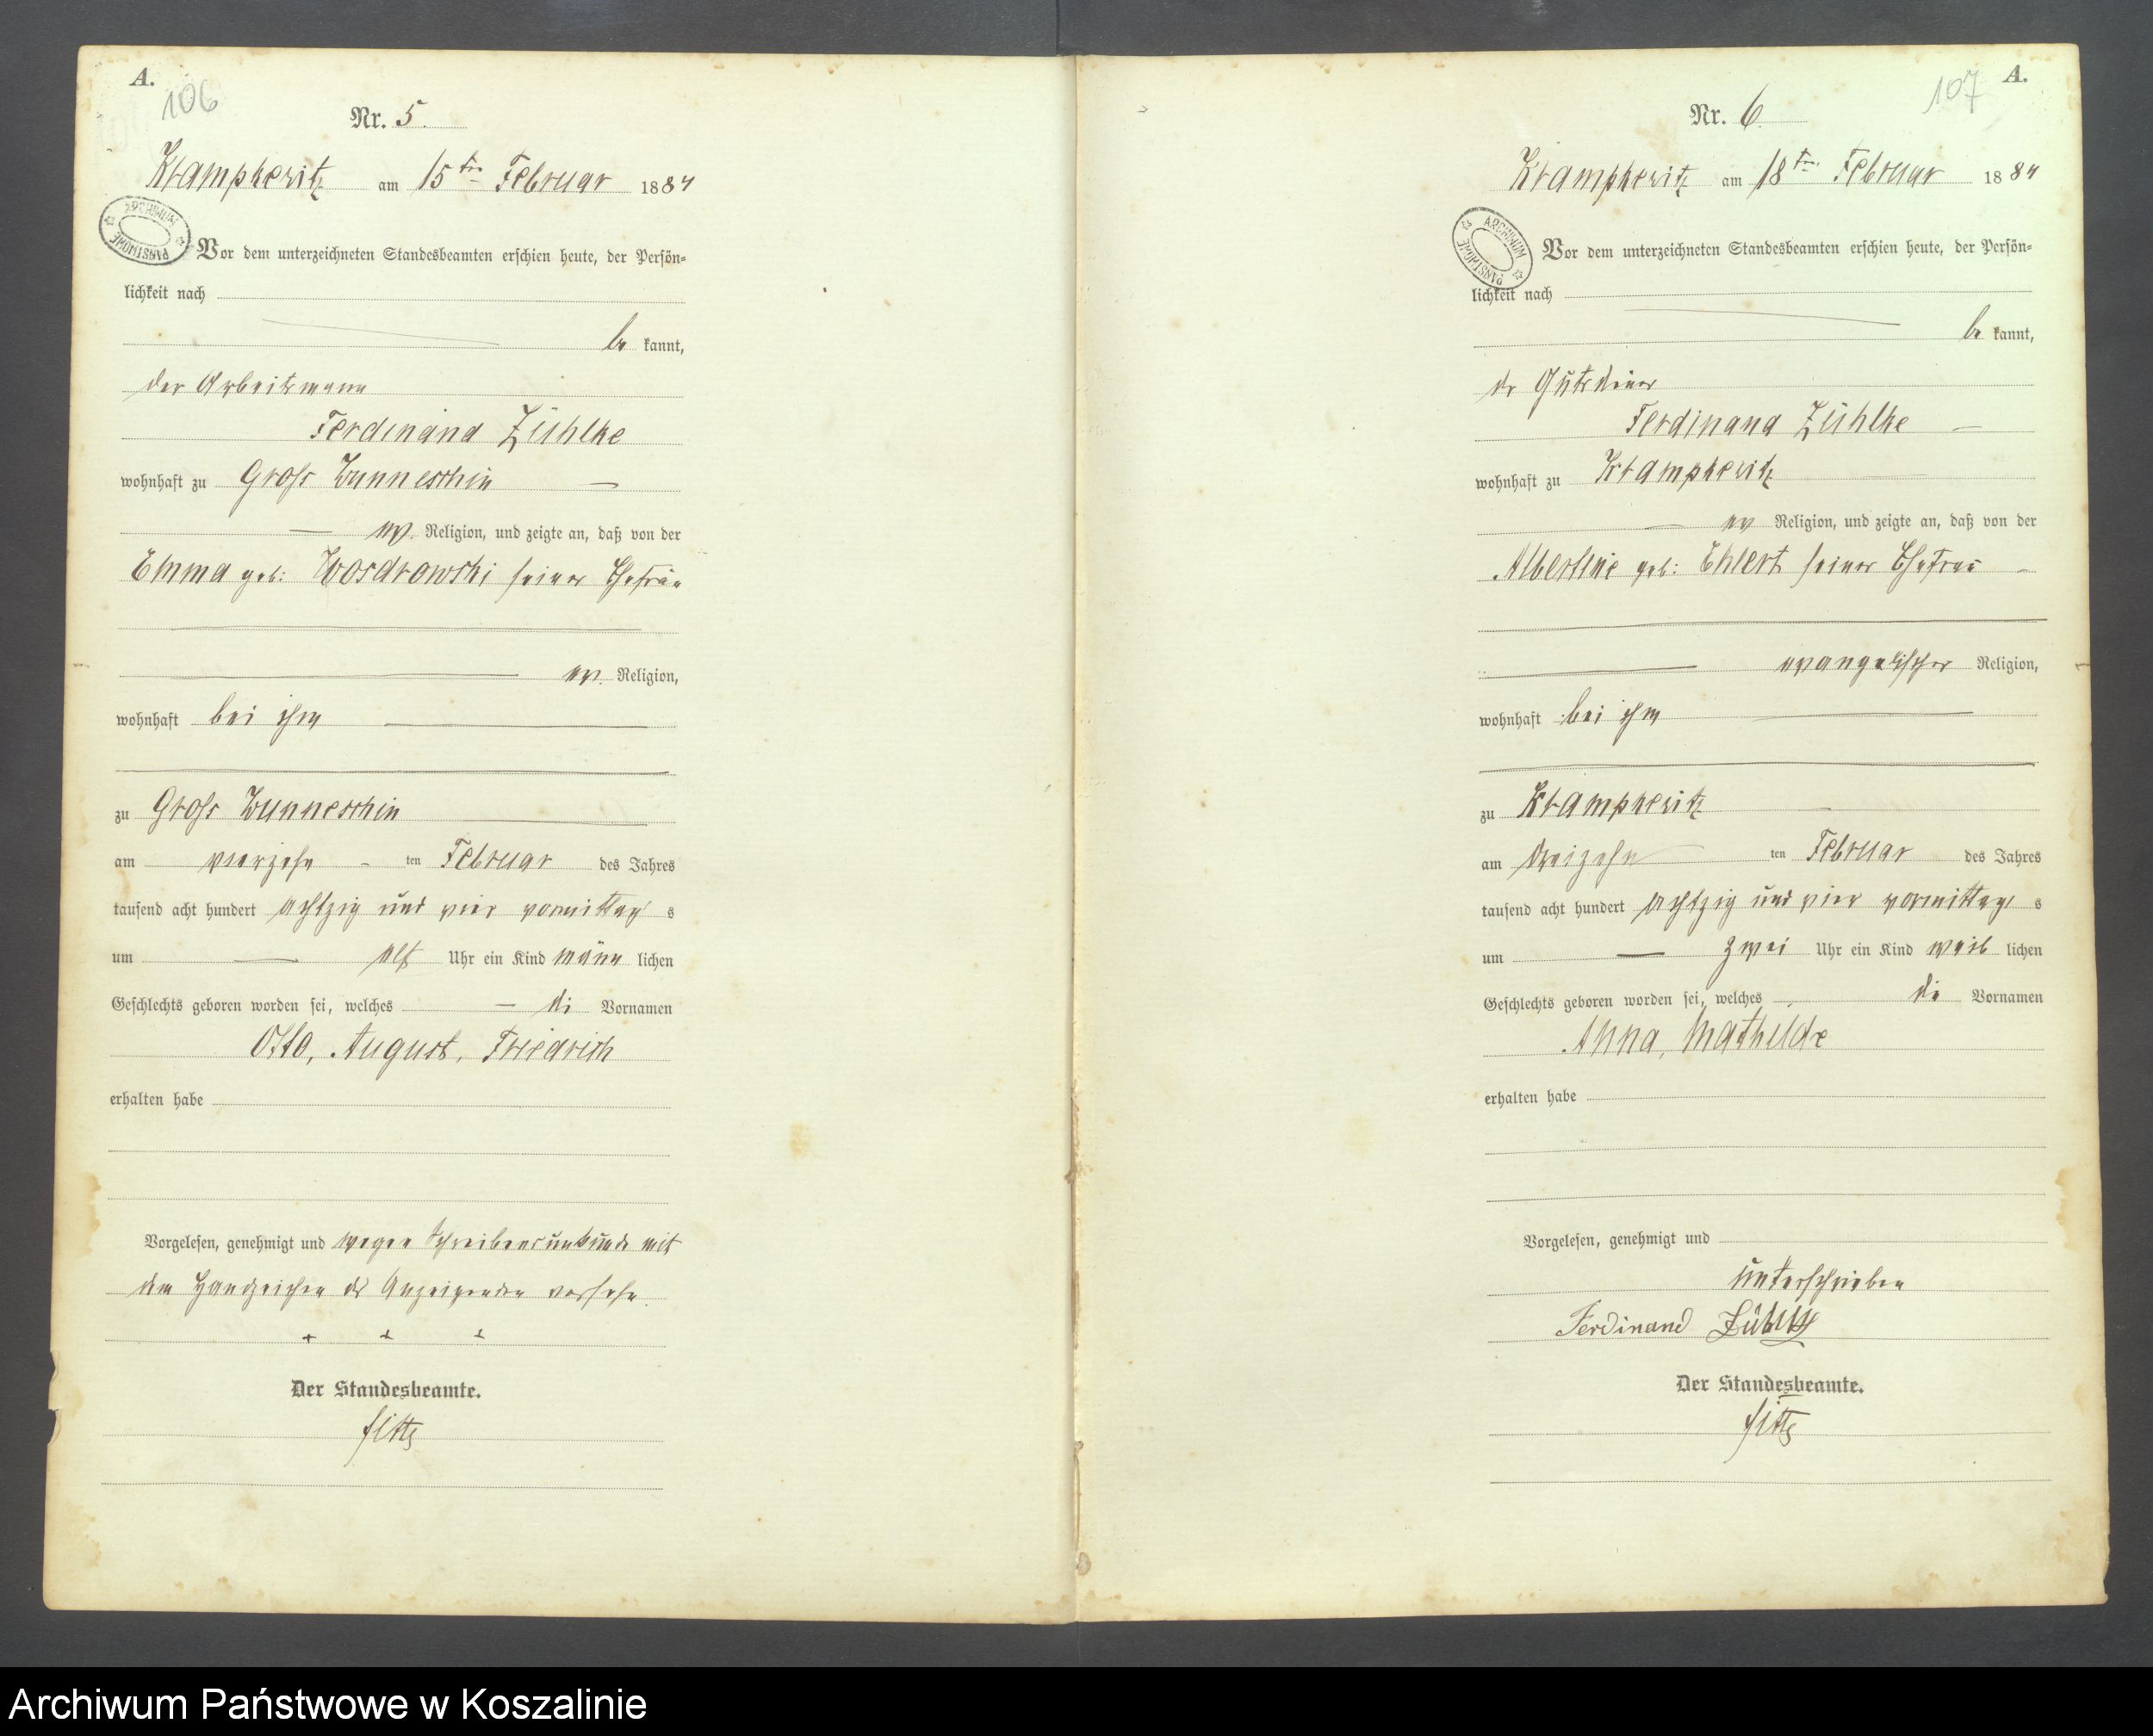 A.
106
Nr. 5.
Krampkewitz am 15ten Februar 1884
ARCHIWUM PAŃSTWOWE
Vor dem unterzeichneten Standesbeamten erschien heute, der Persön-
lichkeit nach
be kannt,
der Arbeitsmann
Ferdinand Zühlke
wohnhaft zu Groß Wunneschin
ev. Religion, und zeigte an, daß von der
Emma geb: Wosdrowski seiner Ehefrau
ev. Religion,
wohnhaft bei ihm
zu Groß Wunneschin
am vierzehn ten Februar des Jahres
tausend acht hundert achtzig und vier vormittag s
um elf Uhr ein Kind männ lichen
Geschlechts geboren worden sei, welches die Vornamen
Otto, August, Friedrich
erhalten habe
Vorgelesen, genehmigt und wegen Schreibensunkunde mit
dem Handzeichen des Anzeigenden versehen.
+ + +
Der Standesbeamte.
A.
107
Nr. 6.
Krampkewitz am 18ten Februar 1884
ARCHIWUM PAŃSTWOWE
Vor dem unterzeichneten Standesbeamten erschien heute, der Persön-
lichkeit nach
be kannt,
der Gutsdiener
Ferdinand Zühlke
wohnhaft zu Krampkewitz
ev Religion, und zeigte an, daß von der
Albertine geb: Ehlert seiner Ehefrau
evangelischer Religion,
wohnhaft bei ihm
zu Krampkewitz
am dreizehn ten Februar des Jahres
tausend acht hundert achtzig und vier vormittag s
um zwei Uhr ein Kind weib lichen
Geschlechts geboren worden sei, welches die Vornamen
Anna, Mathilde
erhalten habe
Vorgelesen, genehmigt und
unterschrieben
Ferdinand Zühlke
Der Standesbeamte.
Archiwum Państwowe w Koszalinie